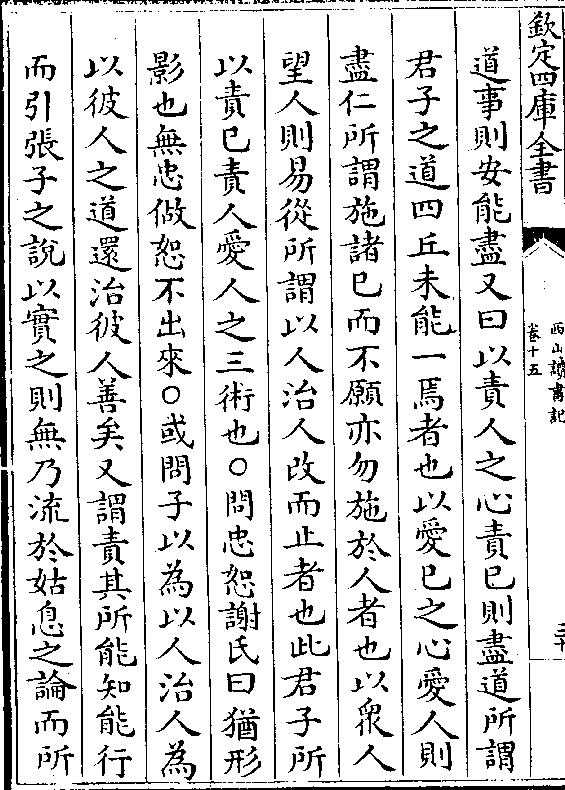 欽定四庫全書
西山讀書記
卷十五
三十
道事則安能盡又曰以責人之心責已則盡道所謂
君子之道四丘未能一焉者也以愛已之心愛人則
盡仁所謂施諸已而不願亦勿施於人者也以衆人
望人則易從所謂以人治人改而止者也此君子所
以責已責人愛人之三術也○問忠恕謝氏曰猶形
影也無忠做恕不出來○或問子以為以人治人為
以彼人之道還治彼人善矣又謂責其所能知能行
而引張子之說以實之則無乃流於姑息之論而所